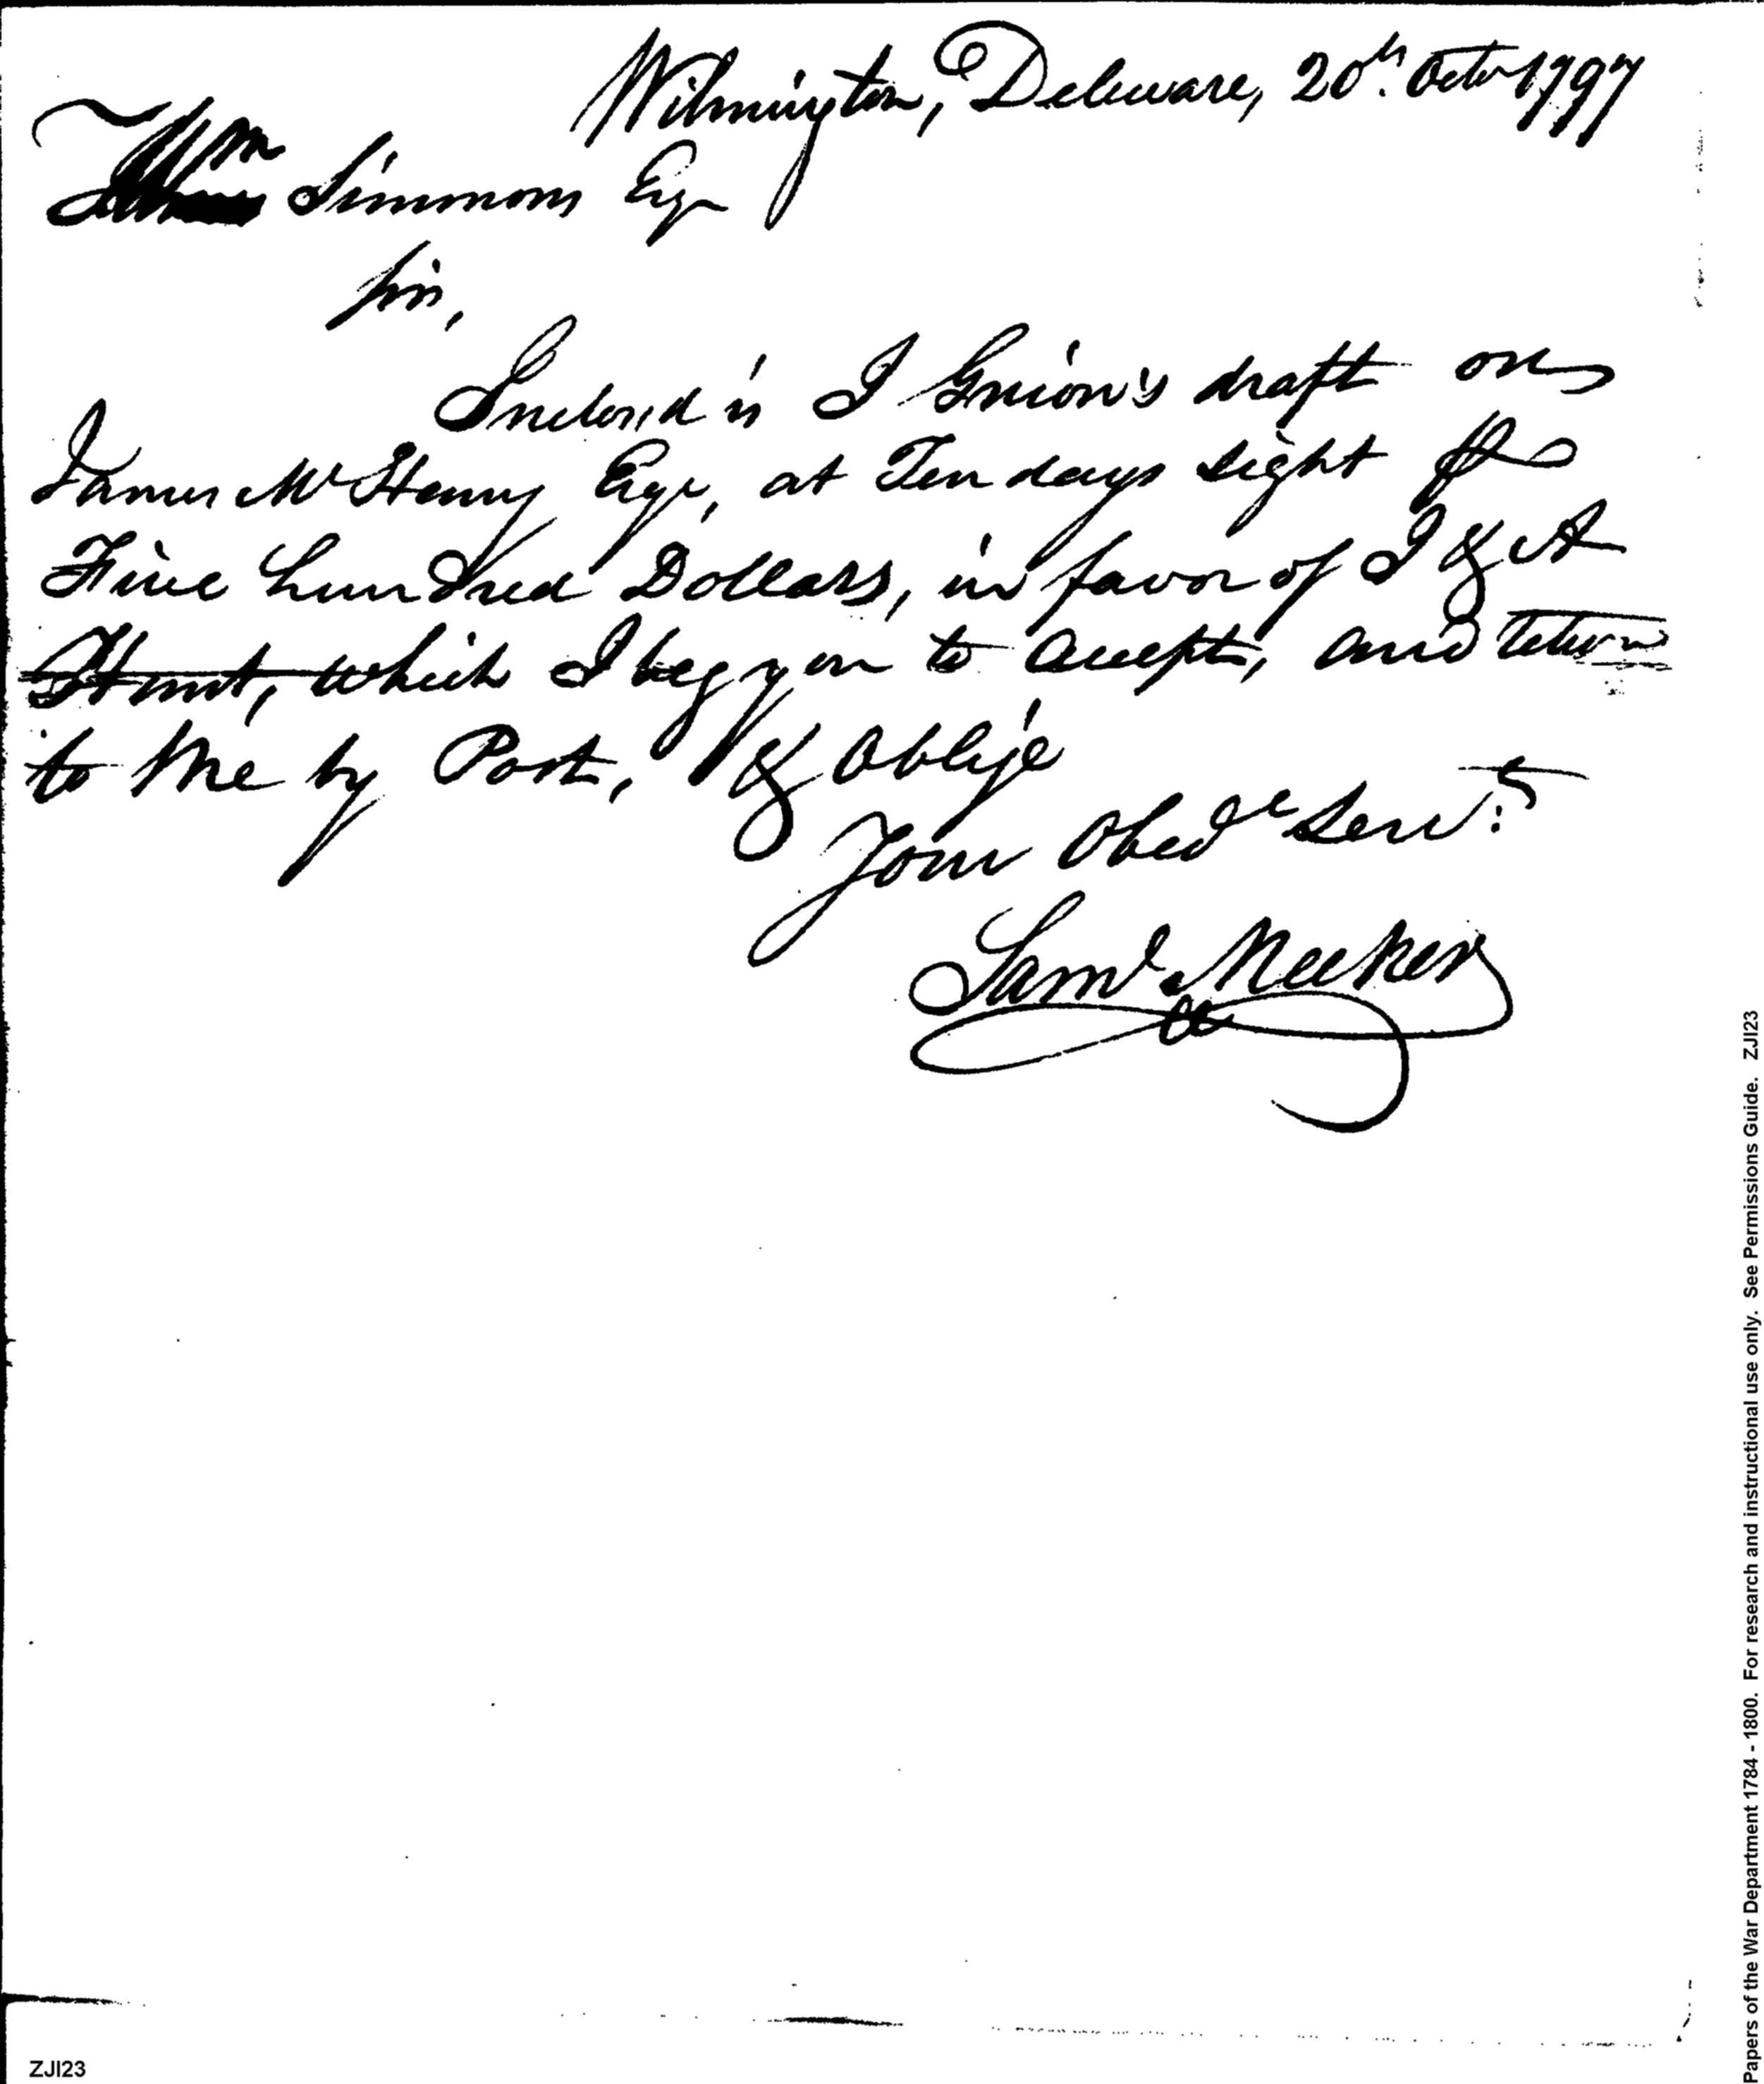 Wilmington, Delaware, 20th. Octor 1797
Wm Simmons Esqr
Sir,
Inclosed is I Guion's draft on
James McHenry Esqr, at Ten days sight for
Five hundred Dollars, in favor of I & A
Hunt, which I beg you to accept, and return
to Me by Post, & oblige
Your Obedt Servt
Saml Meeker
ZJI23
Papers of the War Department 1784 - 1800. For research and instructional use only. See Permissions Guide. ZJI23